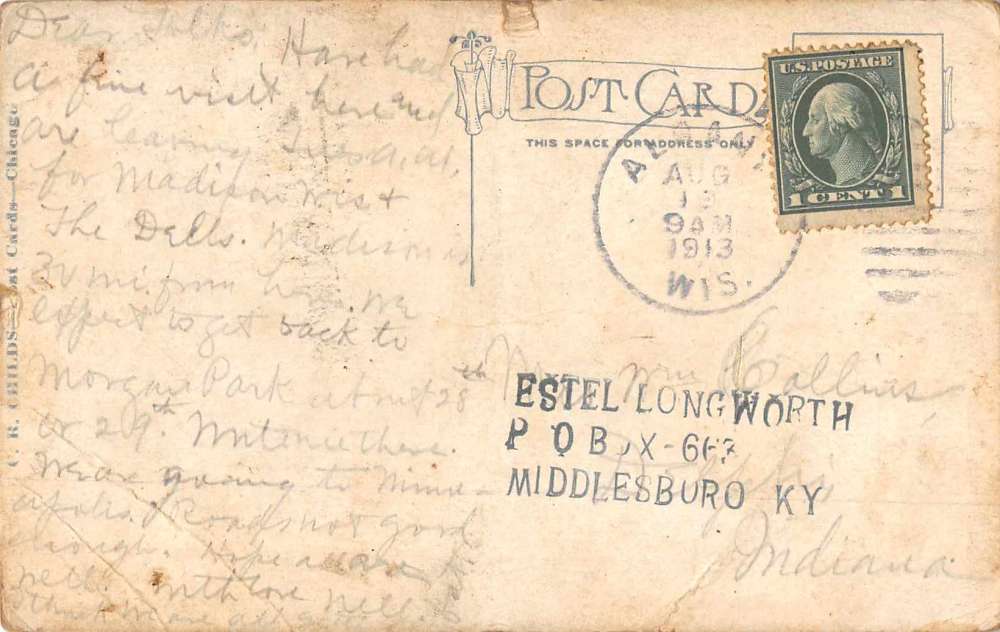 Dear Folks, Have had
a fine visit here and
are leaving
for Madison Wis +
The Dells. Madison is
mi from here. We
expect to get back to
Morgan Park about 28th
or 29th. Write me there.
We are going to Minne-
apolis. Roads not good
though. Hope all are
well. With love Nell.
think we are all
C. R. CHILDS—Post Cards—Chicago
POST CARD
THIS SPACE FOR ADDRESS ONLY
AUG
9 AM
1913
WIS.
U.S. POSTAGE
1 CENT 1
Mrs. Wm Collins,
ESTEL LONGWORTH
P O BOX-663
MIDDLESBORO KY
Indiana